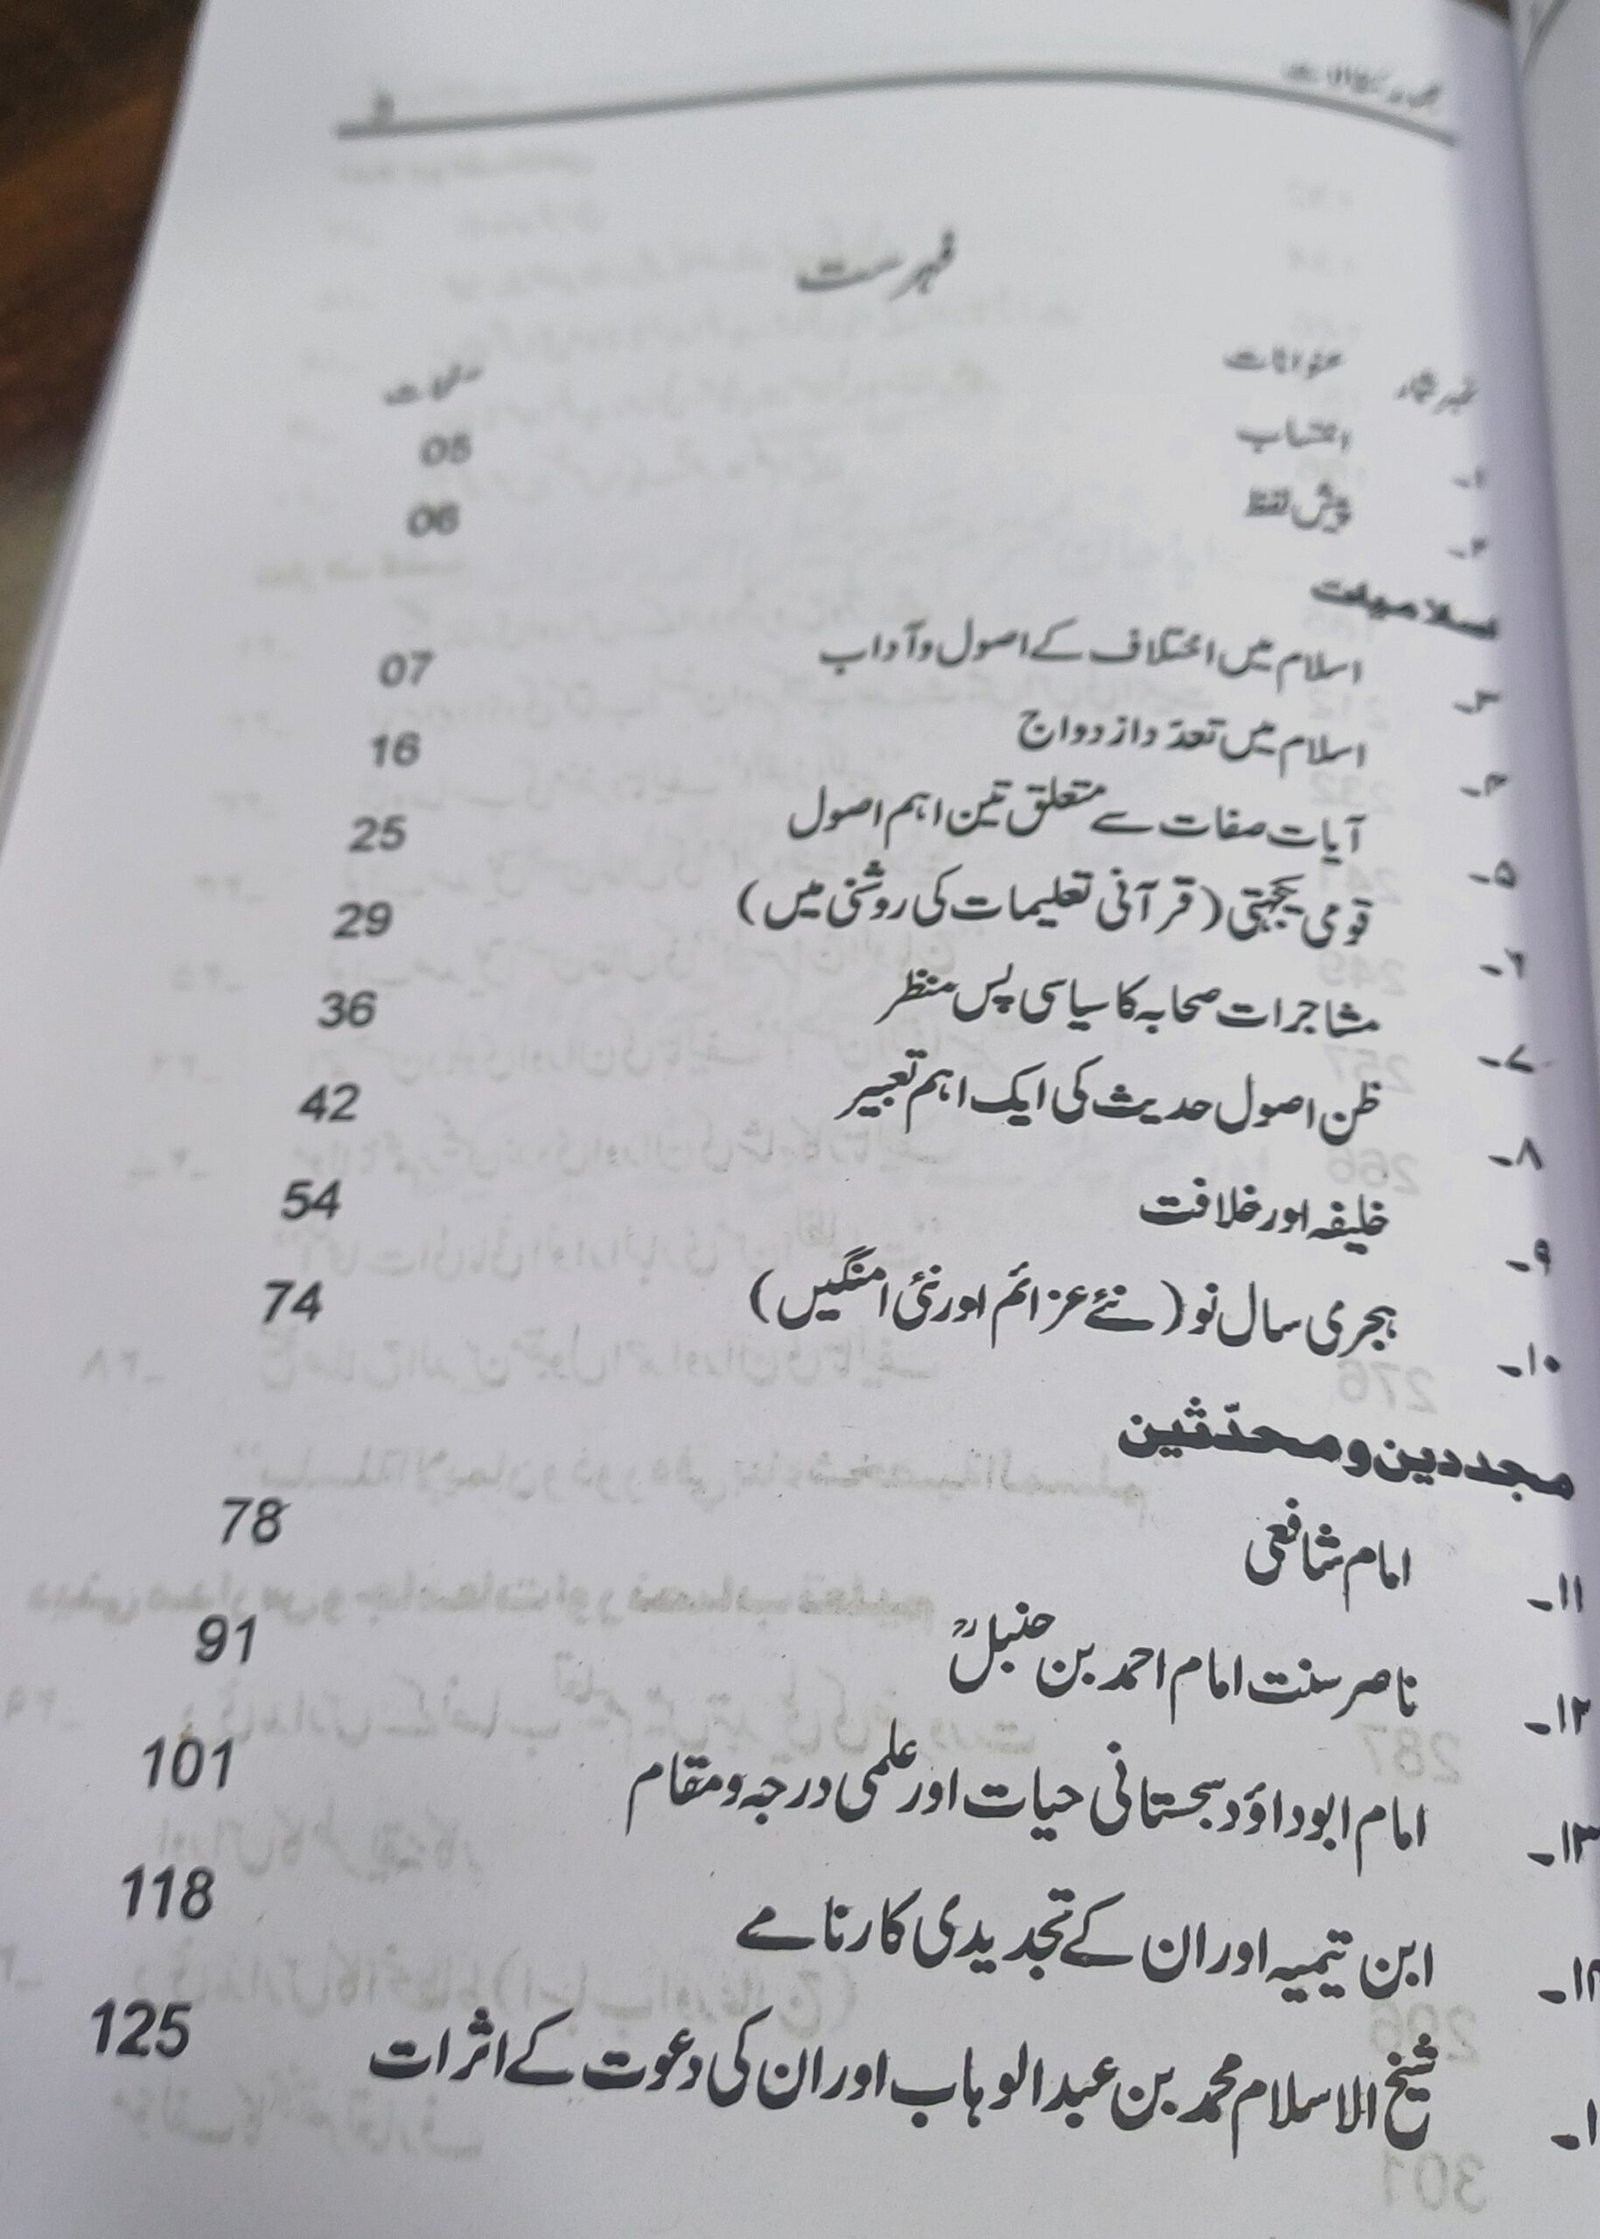 مجموعہ مقالات
فہرست
نمبر شمار عنوانات صفحات
۱۔ انتساب 05
۲۔ پیش لفظ 06
اسلامیات
۳۔ اسلام میں اختلاف کے اصول و آداب 07
۴۔ اسلام میں تعدّد ازدواج 16
۵۔ آیات صفات سے متعلق تین اہم اصول 25
۶۔ قومی یکجہتی (قرآنی تعلیمات کی روشنی میں) 29
۷۔ مشاجرات صحابہ کا سیاسی پس منظر 36
۸۔ ظن اصول حدیث کی ایک اہم تعبیر 42
۹۔ خلیفہ اور خلافت 54
۱۰۔ ہجری سال نو (نئے عزائم اور نئی امنگیں) 74
مجددین و محدّثین
۱۱۔ امام شافعی 78
۱۲۔ ناصر سنت امام احمد بن حنبلؒ 91
۱۳۔ امام ابوداؤد سجستانی حیات اور علمی درجہ و مقام 101
۱۴۔ ابن تیمیہ اور ان کے تجدیدی کارنامے 118
شیخ الاسلام محمد بن عبد الوہاب اور ان کی دعوت کے اثرات 125